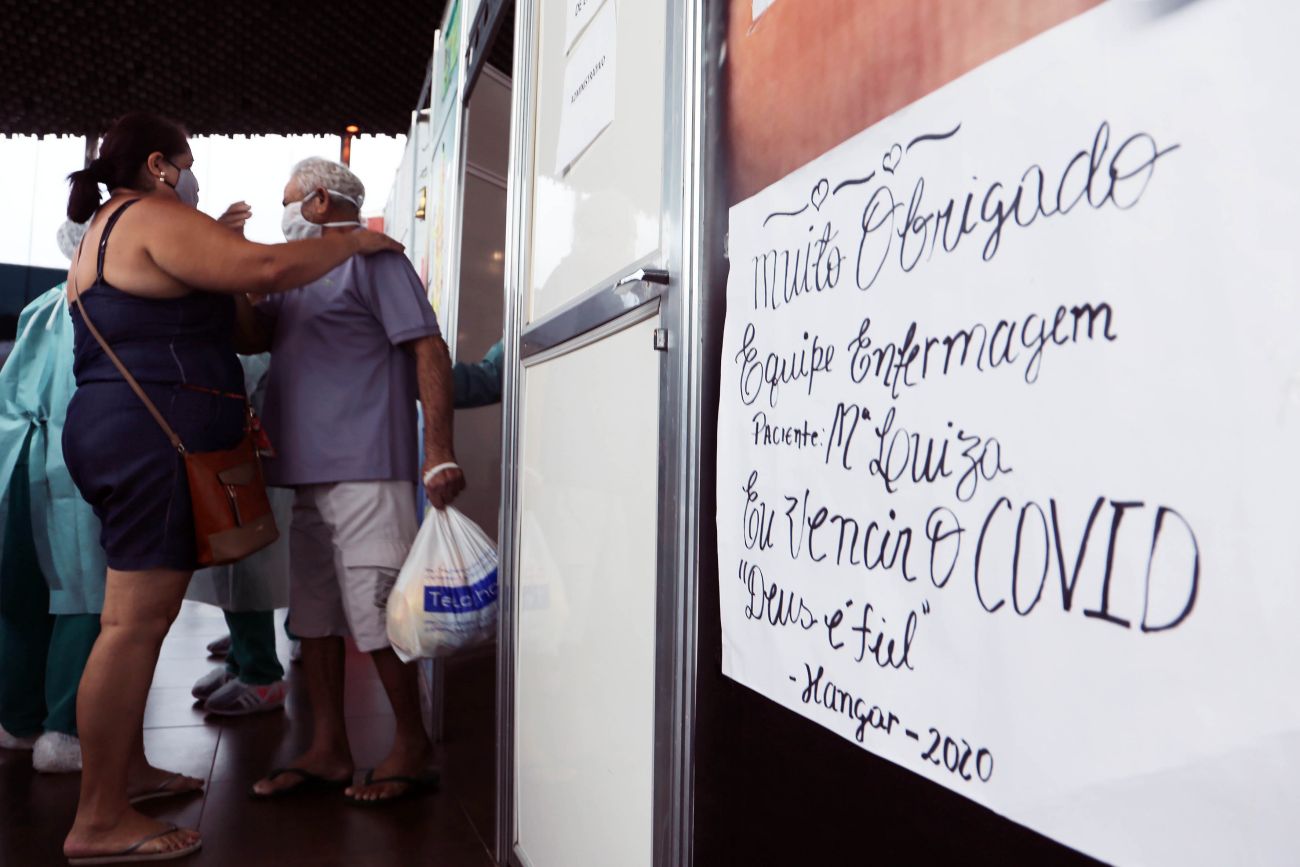 ADMINISTRATIVO
Muito Obrigado
Equipe Enfermagem
Paciente: Mª Louiza
Eu Vencir O COVID
"Deus é fiel"
- Hangar - 2020